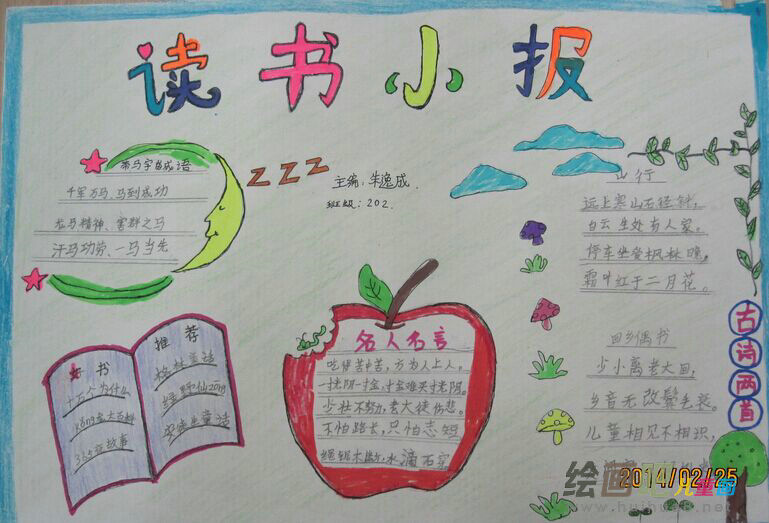 读书小报
带马字的成语
千军万马、马到成功
龙马精神、害群之马
汗马功劳、一马当先
ZZZ
主编:朱逸成.
班级:202.
山行
远上寒山石径斜,
白云生处有人家。
停车坐爱枫林晚,
霜叶红于二月花。
古诗两首
回乡偶书
少小离老大回,
乡音无改鬓毛衰。
儿童相见不相识,
好书
推荐
十万个为什么
365夜故事
格林童话
绿野仙zong
安徒生童话
名人名言
吃得苦中苦,方为人上人。
一寸光阴一寸金,寸金难买寸光阴。
少壮不努力,老大徒伤悲。
不怕路长,只怕志短
绳锯木断,水滴石穿
2014/02/25
绘画吧 儿童画